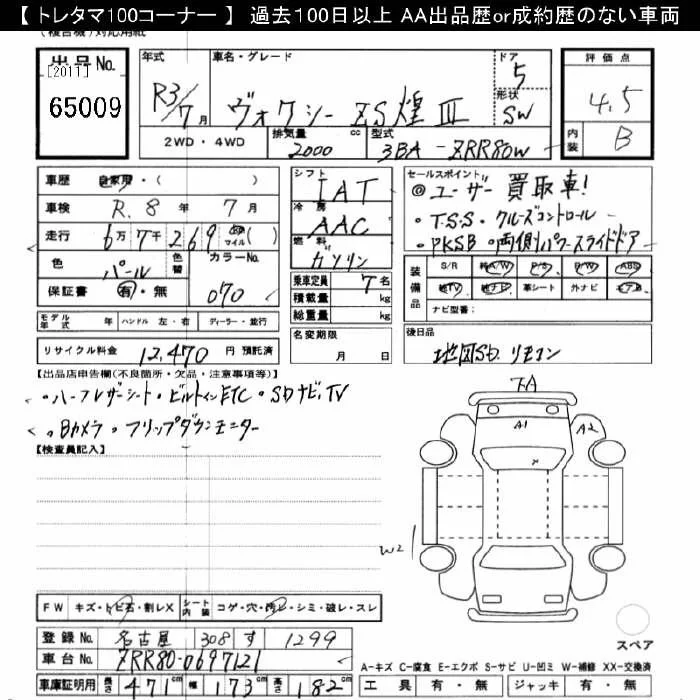 【 トレタマ100コーナー 】 過去100日以上 AA出品歴or成約歴のない車両
(複合機)対応用紙
出品No. 年式 車名・グレード ドア 評価点
[2011]
65009 R3/7月 ヴォクシー ZS煌Ⅲ 5 4.5
形状 SW
2WD・4WD 排気量 cc 型式 内装 B
2000 3BA-ZRR80W
車歴 自家用・( )
車検 R.8年 7月
走行 6万7千269 マイル ( )
色 パール 色替 カラーNo.
保証書 有・無 070
シフト IAT
冷房 AAC
燃料 ガソリン
乗車定員 7名
積載量 kg
総重量 kg
セールスポイント
◎ユーザー買取車!
・T.S.S・クルーズコントロール
・PKSB・両側パワースライドドア
装備品 S/R 純A/W P/S P/W ABS
純TV 純ナビ 革シート 外ナビ エアB
ナビ型番:
モデル年式 年 ハンドル 左・右 ディーラー・並行
名変期限 月 日
後日品
地図SD. リモコン
リサイクル料金 12,470 円 預託済
【出品店申告欄(不良箇所・欠品・注意事項等)】
・ハーフレザーシート・ビルトインETC・SDナビ、TV
・Bカメラ・フリップダウンモニター
【検査員記入】
下A
A1 A2
W2
FW キズ・トビ石・割レX シート内装 コゲ・穴・汚レ・シミ・破レ・スレ
登録No. 名古屋 308 す 1299
車台No. ZRR80-0697121
車庫証明用 長さ 471cm 幅 173cm 高さ 182cm
スペア
A-キズ C-腐食 E-エクボ S-サビ U-凹ミ W-補修 XX-交換済
工具 有・無 ジャッキ 有・無